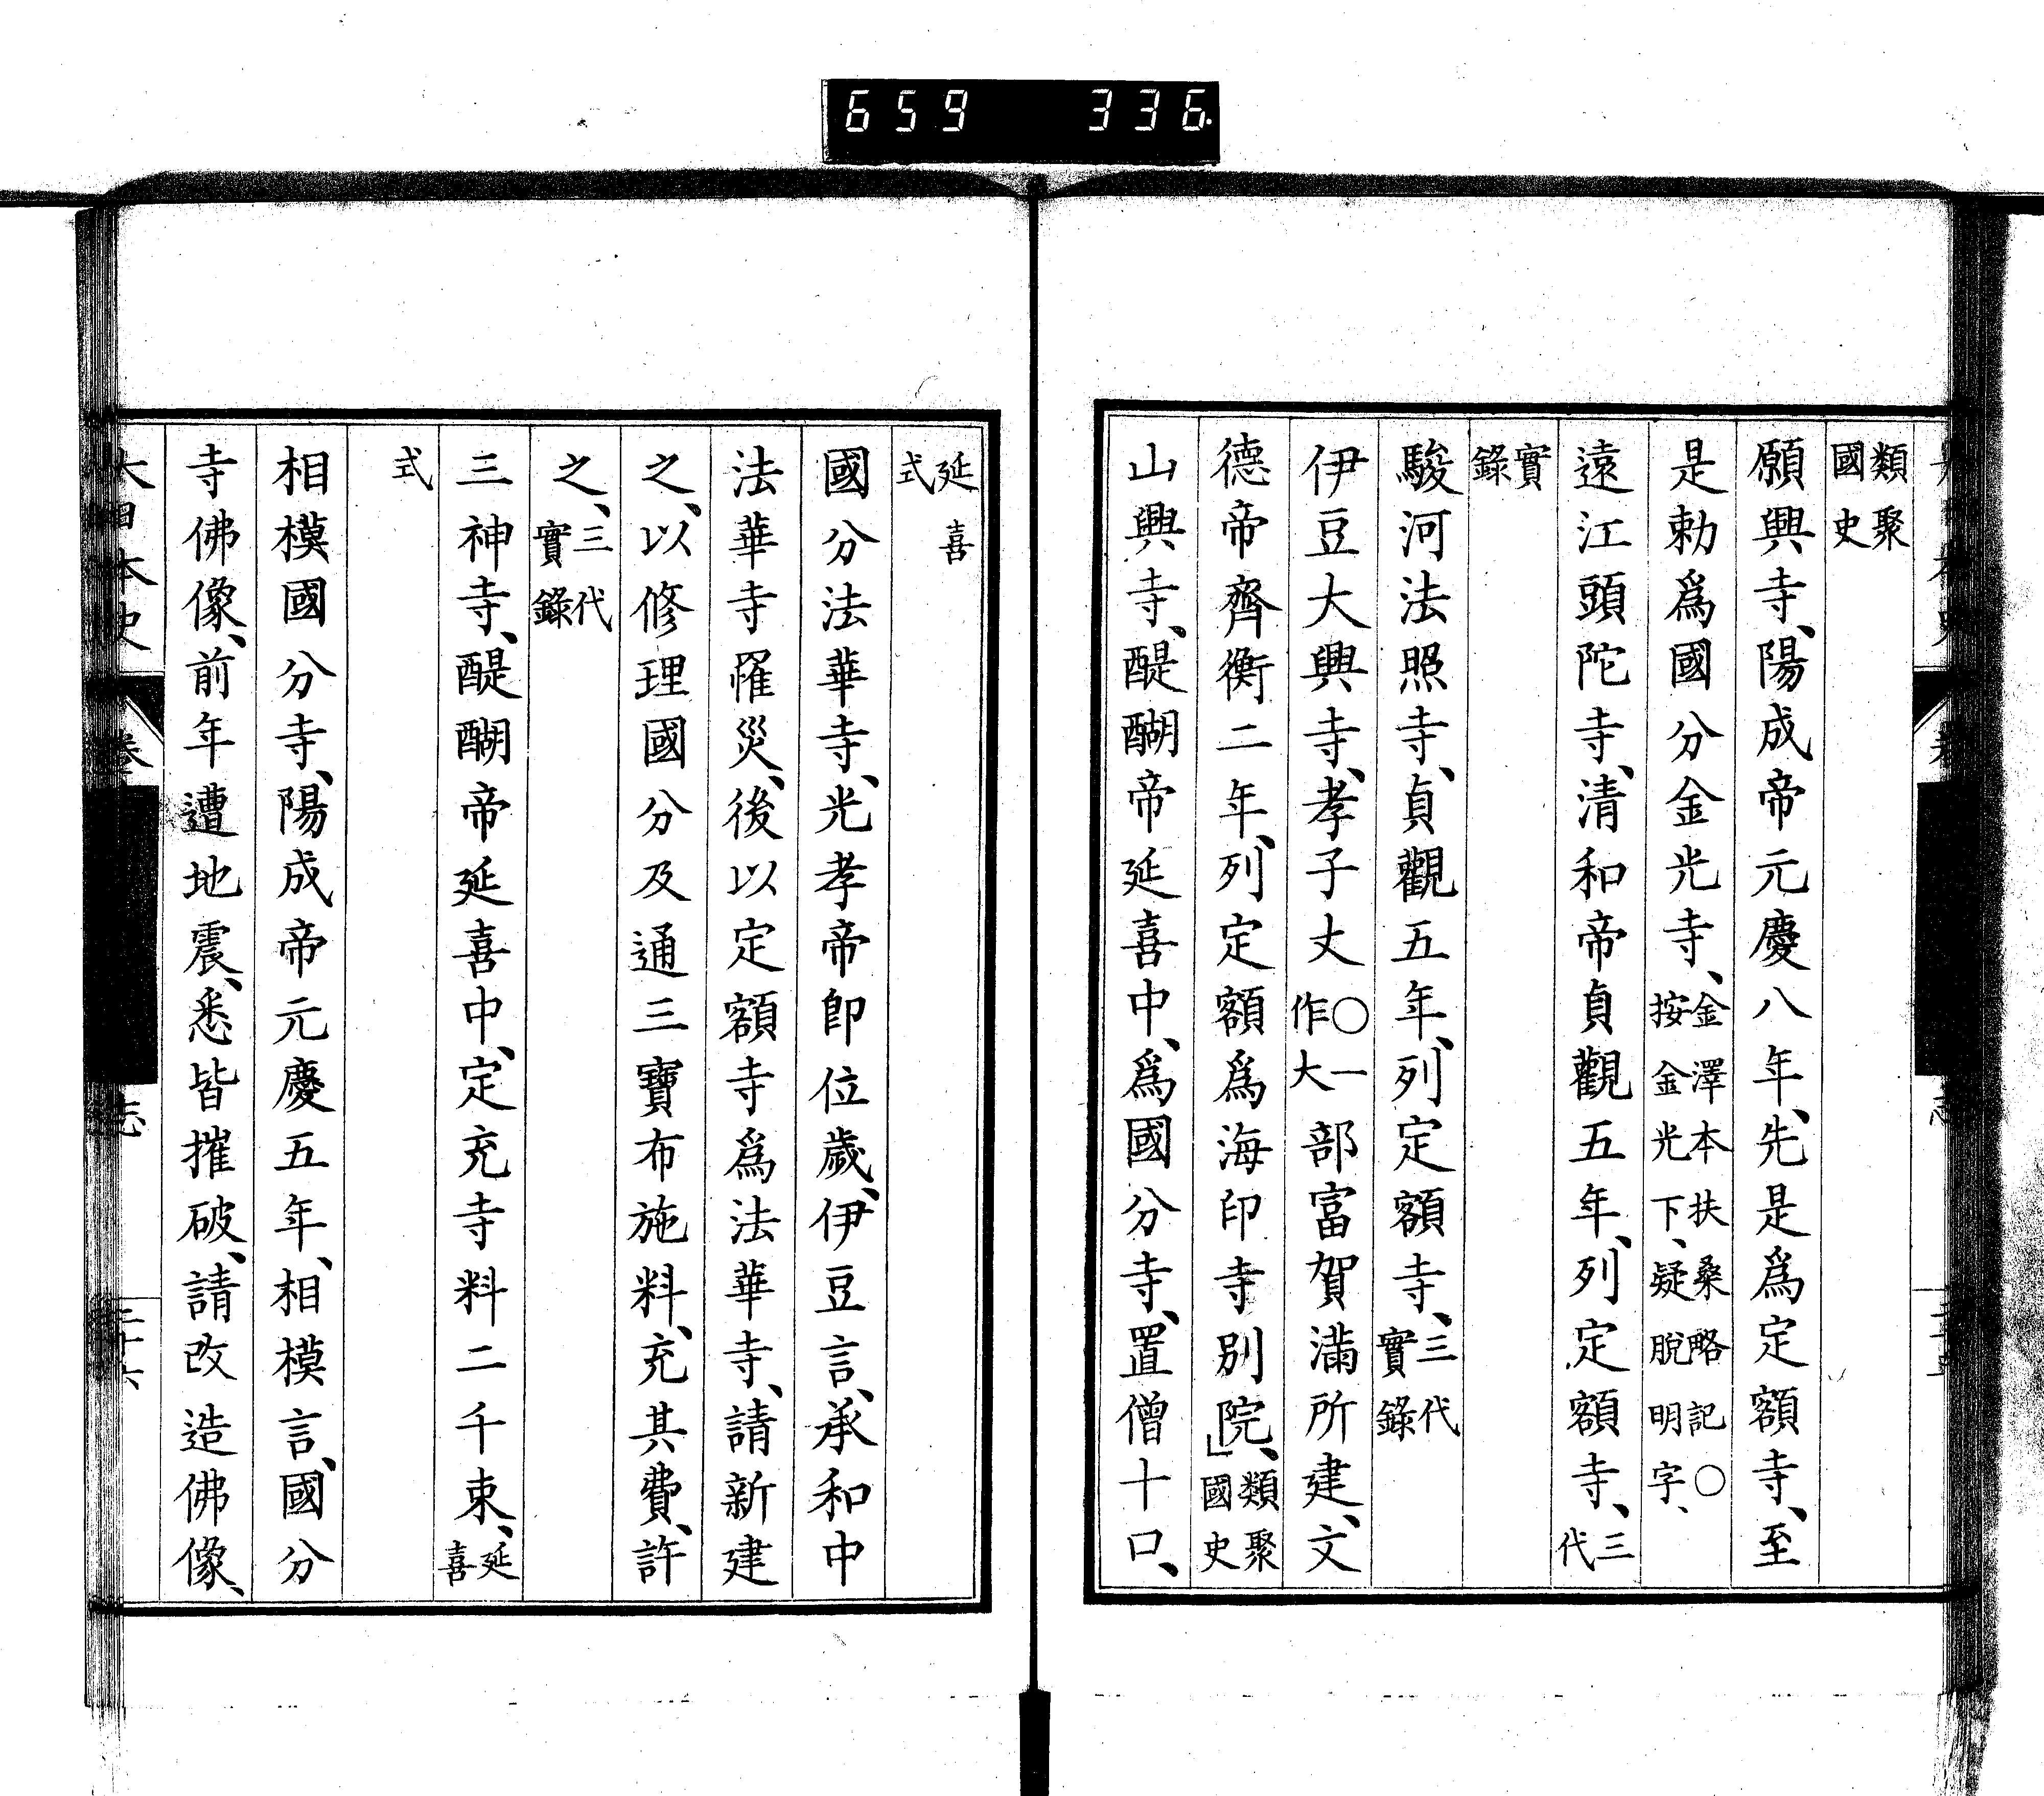 659 336
類聚
國史
願興寺、陽成帝元慶八年、先是爲定額寺、至
是勅爲國分金光寺、金澤本扶桑略記○
按金光下、疑脫明字、
遠江頭陀寺、清和帝貞觀五年、列定額寺、三
代
實
錄
駿河法照寺、貞觀五年、列定額寺、三代
實錄
伊豆大興寺、孝子丈○一
作大部富賀滿所建、文
德帝齊衡二年、列定額爲海印寺別院」、類聚
國史
山興寺、醍醐帝延喜中、爲國分寺、置僧十口、
延喜
式
國分法華寺、光孝帝卽位歲、伊豆言、承和中
法華寺罹災、後以定額寺爲法華寺、請新建
之、以修理國分及通三寶布施料、充其費、許
之、三代
實錄
三神寺、醍醐帝延喜中、定充寺料二千束、延
喜
式
相模國分寺、陽成帝元慶五年、相模言、國分
寺佛像、前年遭地震、悉皆摧破、請改造佛像、
大日本史 卷 志 二十六